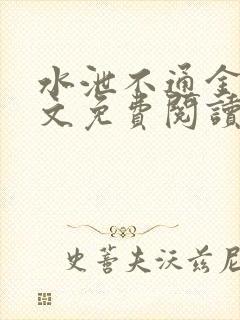 水泄不通全
文免費閱讀
史蒂夫沃兹尼